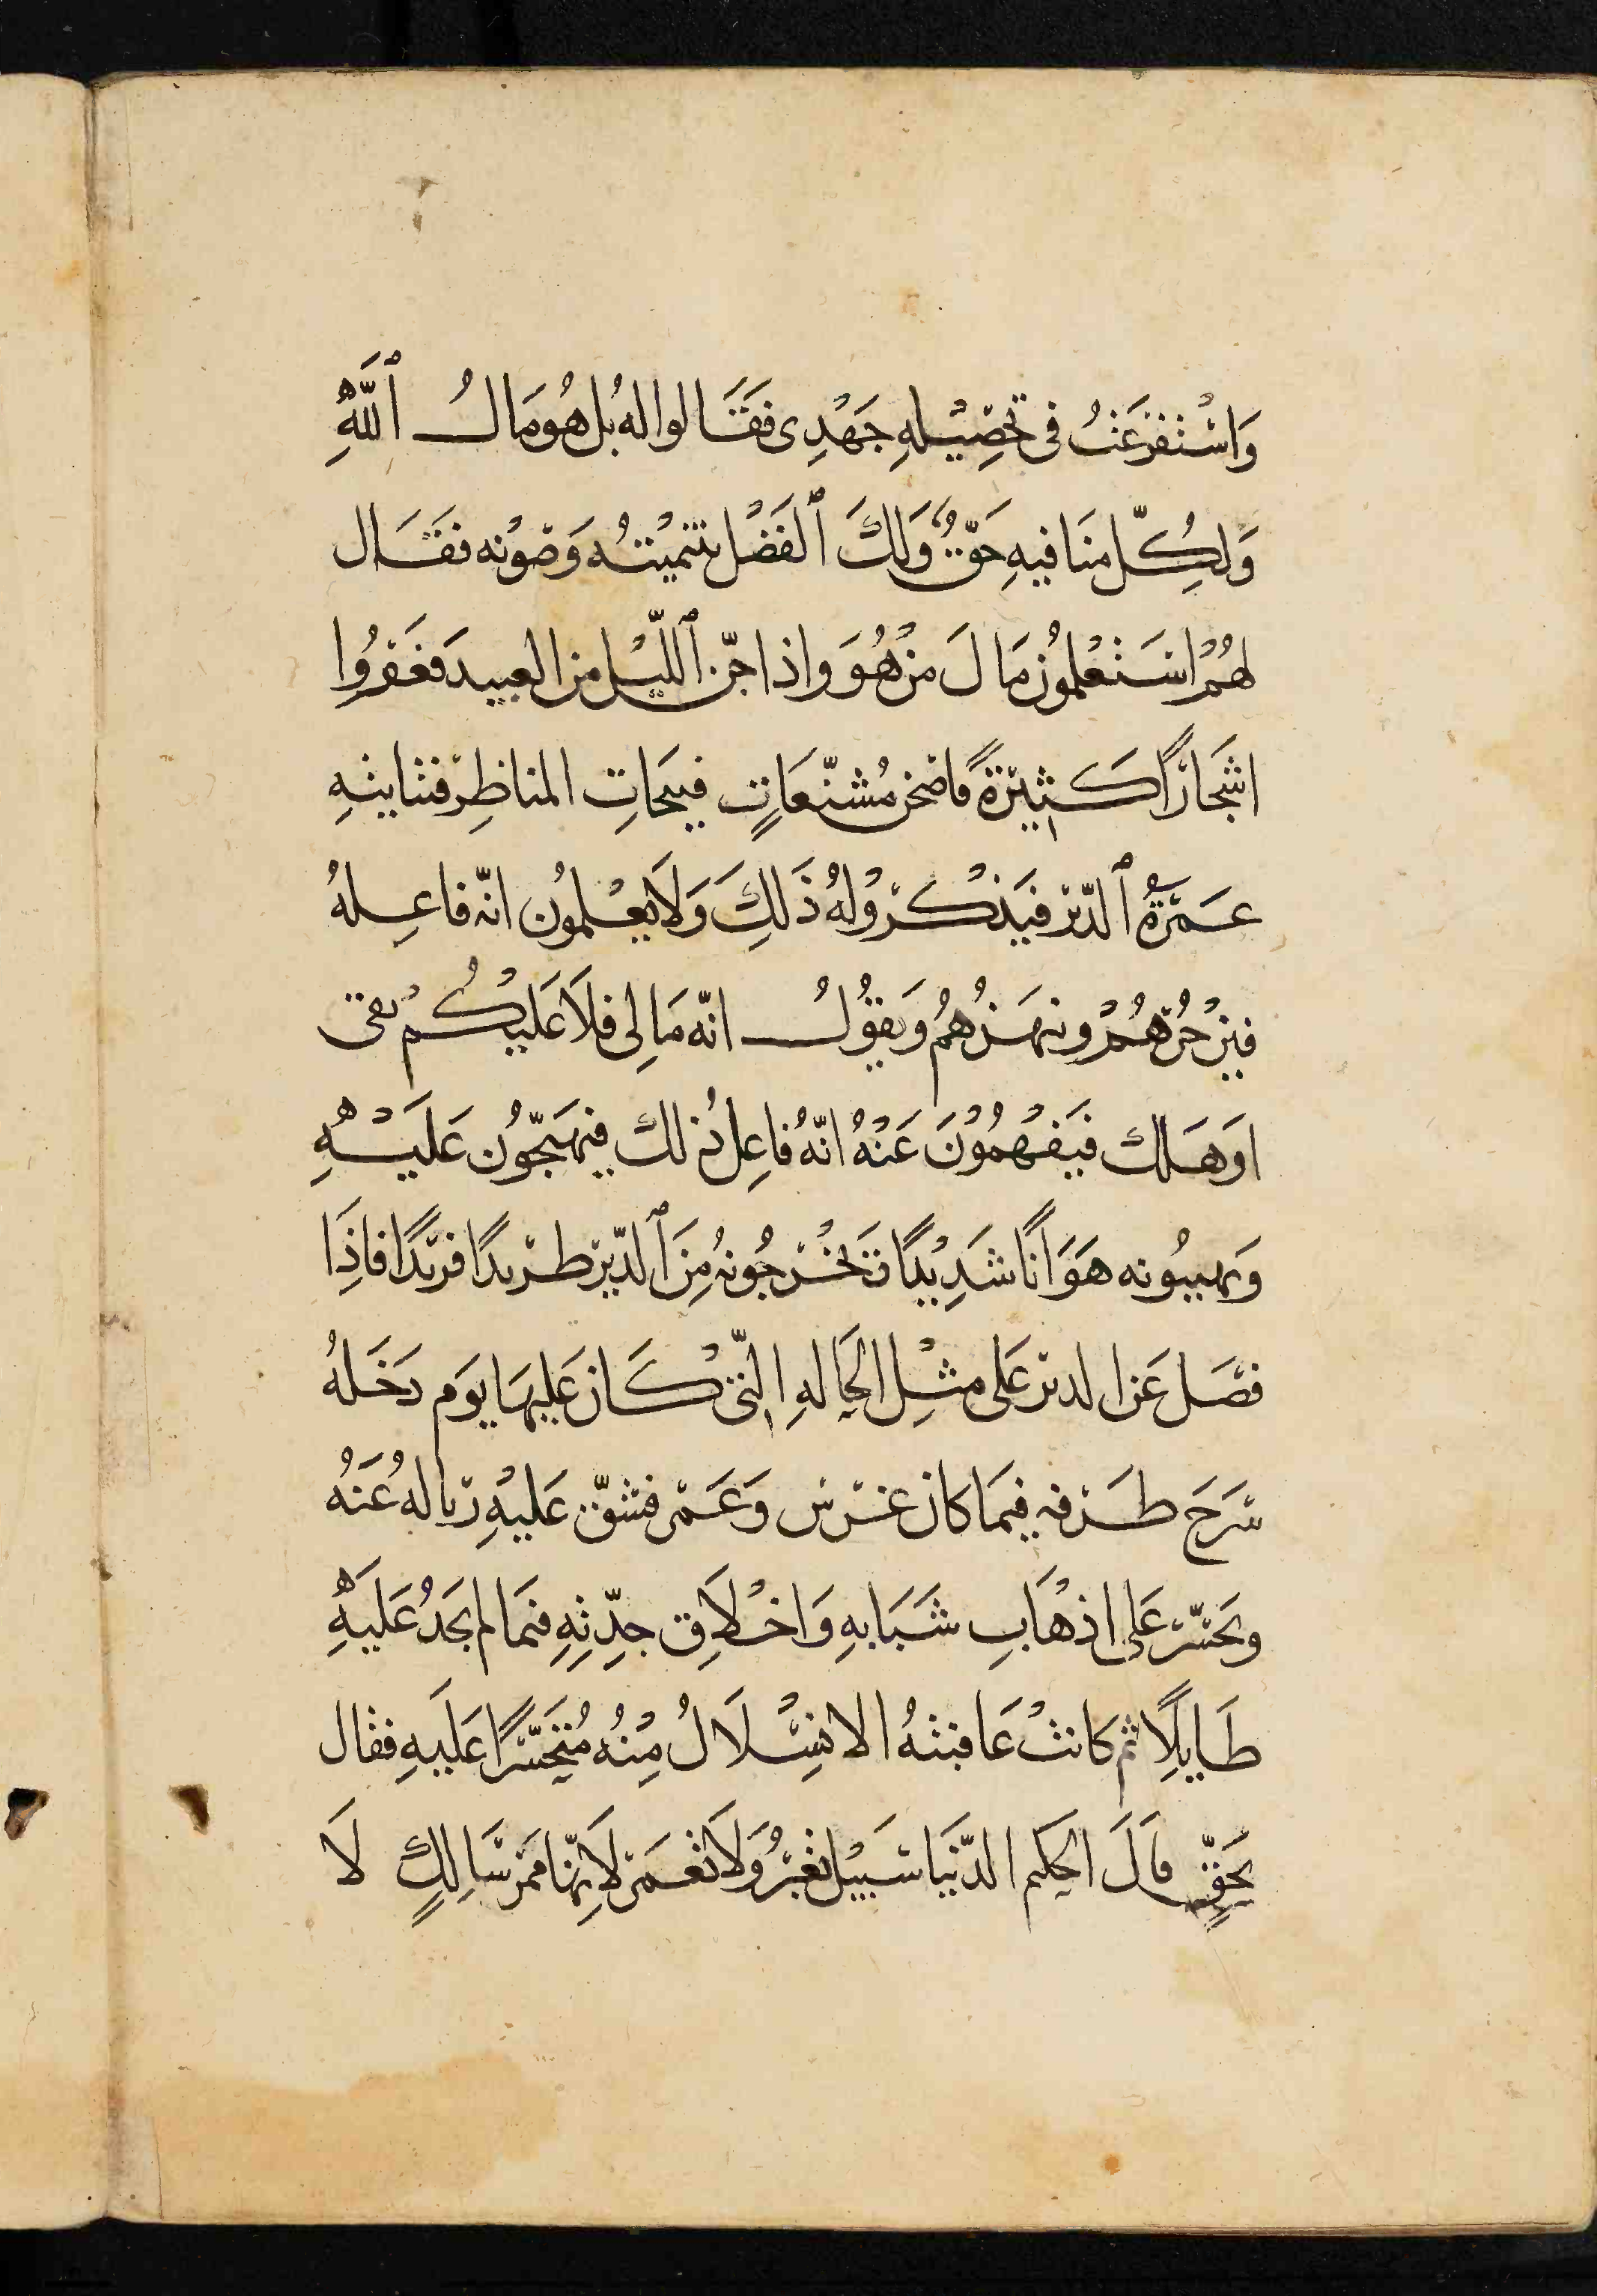 وَاسْتفرَغتُ فى تحصِيْلهِ جَهْدِى فقَالوا له بل هُو مَالُ ٱللَّهِ
وَلِكُلّ منَا فيهِ حَقّ وَلكَ ٱلفَضْل بتنميْتهُ وَصَوْنه فقَال
لهُمْ اسَتعْلمُون مَالَ منْ هُوَ واذا جّن ٱللّيْل من العبيد فعَقرُوا
اشجَارًا كَثيْرَةً فاضحَن مُشنّعَاتٍ قبيحَاتِ المناظِر فتنا بنيْهِ
عَمَرَةُ ٱلدّير فيَذكُرْوْا لهُ ذَلكَ وَلَا يعْلمُون انّه فاعِلهُ
فيزْجُرُهُمْ وينهَرُهُمْ وَيقوُلُ انّه مَالى فلَا عَليْكُم بقى
اوَ هَلك فيَفهمُوْنَ عَنْهُ انّهُ فاعِل ذلك فيهَجّوُن عَليَهِ
وَيهيبُونه هَوَانًا شَدِيْدًا وَيخرجُونهُ مِنَ ٱلدّيْر طريدًا فريْدًا فاذِا
فصَل عَن الدير عَلى مثْل الحَالهِ الّتىْ كَان عَليهَا يوَم دَخَلهُ
سَرَحَ طَرْفه فيمَا كان غرَس وَعَمَر فشقّ عَليْهِ زياله عُنَهُ
وتحَسّرَ عَلى اذهْابِ شَبَابهِ وَاخْلَاقِ جدّتهِ فيمَا لم يجَدُ عَليَهِ
طَايلًا ثم كانتْ عَاقبتهُ الانسْلَالُ مِنْهُ مُتحَسّرًا عَليَهِ فقال
بحَقّ قَالَ الحكيم الدّنيَا سَبيْل تعْبرُ وَلَا تعْمَر لَانهّا ممَر سَالِكٍ لَا